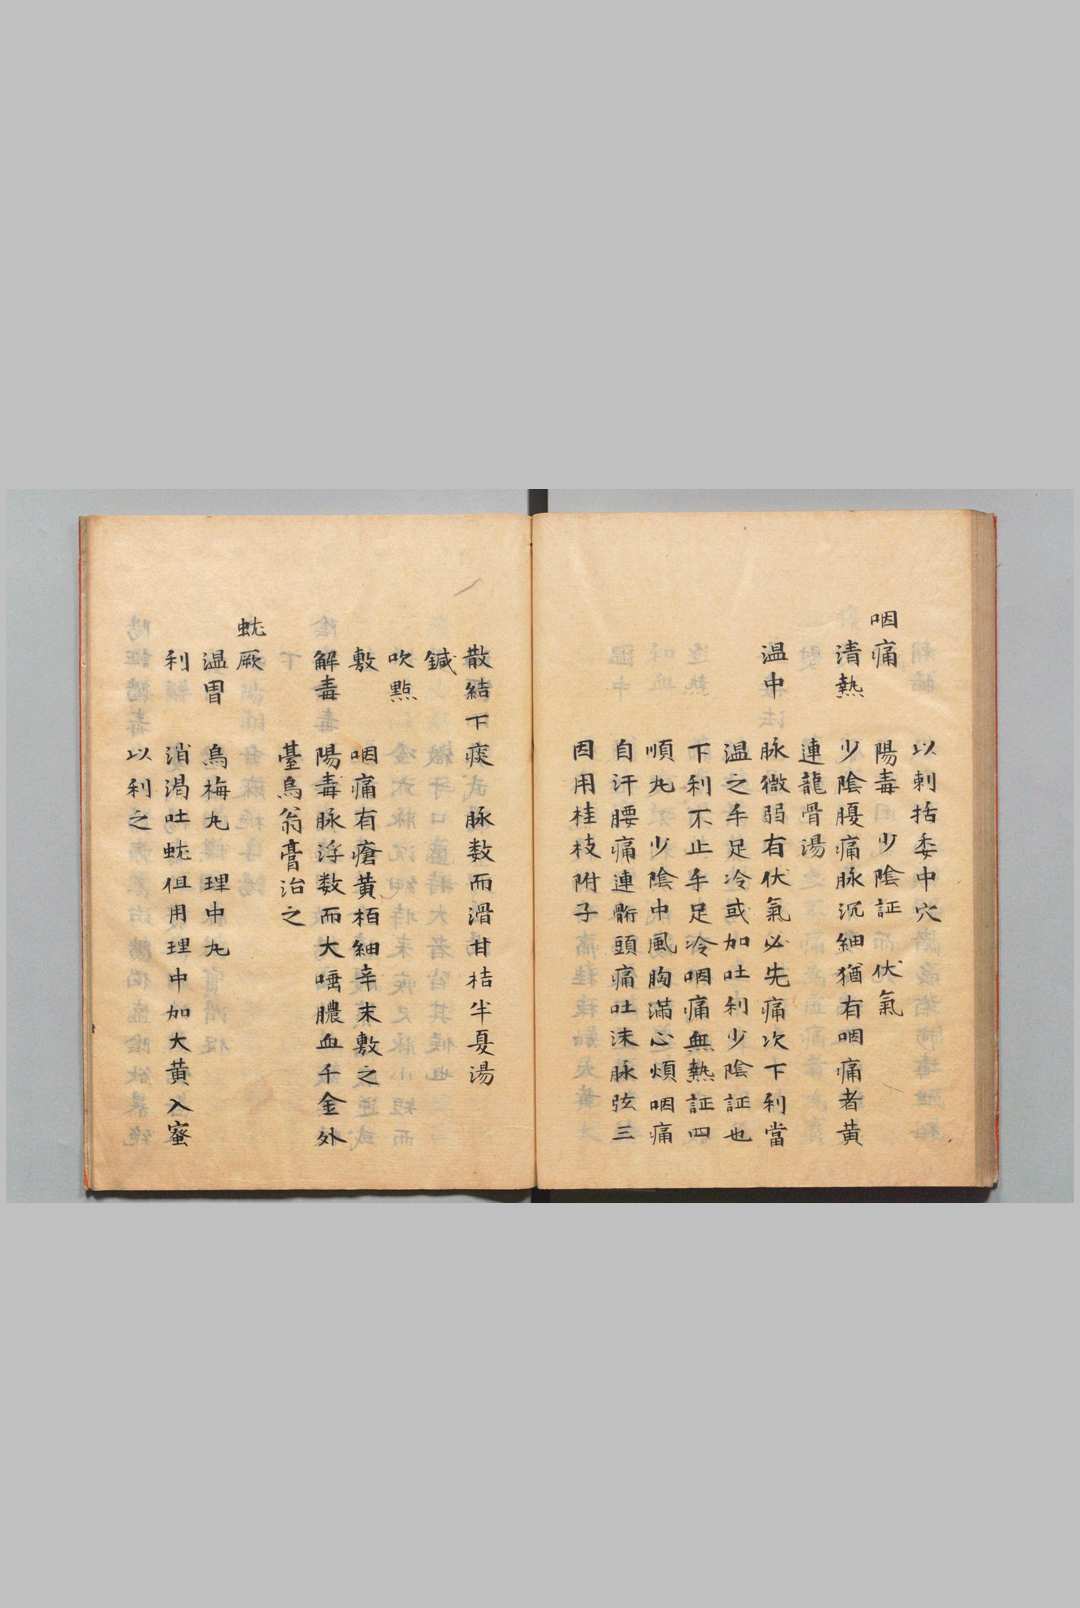 以刺括委中穴
咽痛 陽毒 少陰証 伏氣
清熱 少陰腹痛脉沉細猶有咽痛者黄
連龍骨湯
温中 脉微弱有伏氣必先痛次下利當
温之手足冷或加吐利少陰証也
下利不止手足冷咽痛無熱証四
順丸 少陰中風胸滿心煩咽痛
自汗腰痛連骱頭痛吐沫脉弦三
因用桂枝附子
散結下痰 脉数而滑甘桔半夏湯
鍼
吹㸃
敷 咽痛有瘡黄栢細辛末敷之
解毒毒 陽毒脉浮数而大唾膿血千金外
臺烏翁膏治之
蚘厥
温胃 烏梅丸 理中丸
利 消渇吐蚘但用理中加大黄入蜜
以利之